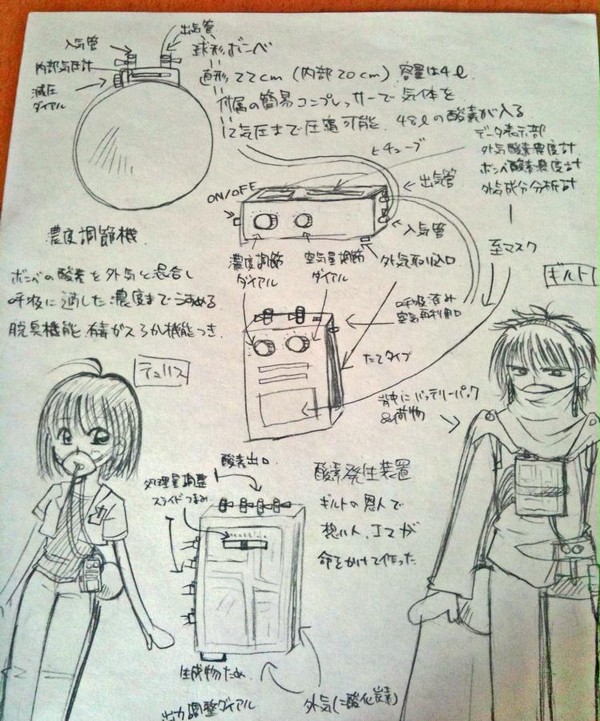 出気管
入気管
内部気圧計
減圧
ダイアル
球形ボンベ
直形22cm(内部20cm)容量は4ℓ
付属の簡易コンプレッサーで気体を
12気圧まで圧縮可能。48ℓの酸素が入る
チューブ
データ表示部
外気酸素濃度計
ボンベ酸素濃度計
外気成分分析計
ON/OFF
出気管
入気管
外気取り込み口
濃度調節
ダイヤル
空気量調節
ダイヤル
至マスク
濃度調節機
ボンベの酸素を外気と混合し
呼吸に適した濃度までうすめる
脱臭機能、有毒ガスろか機能つき
呼吸済み
空気再利用口
たてタイプ
ギルト
背中にバッテリーパック
&荷物
テュリス
酸素出口
処理量調整
スライドつまみ
酸素発生装置
ギルトの恩人で
想い人、エマが
命をかけて作った
生成物ため
出力調整ダイヤル
外気(二酸化炭素)